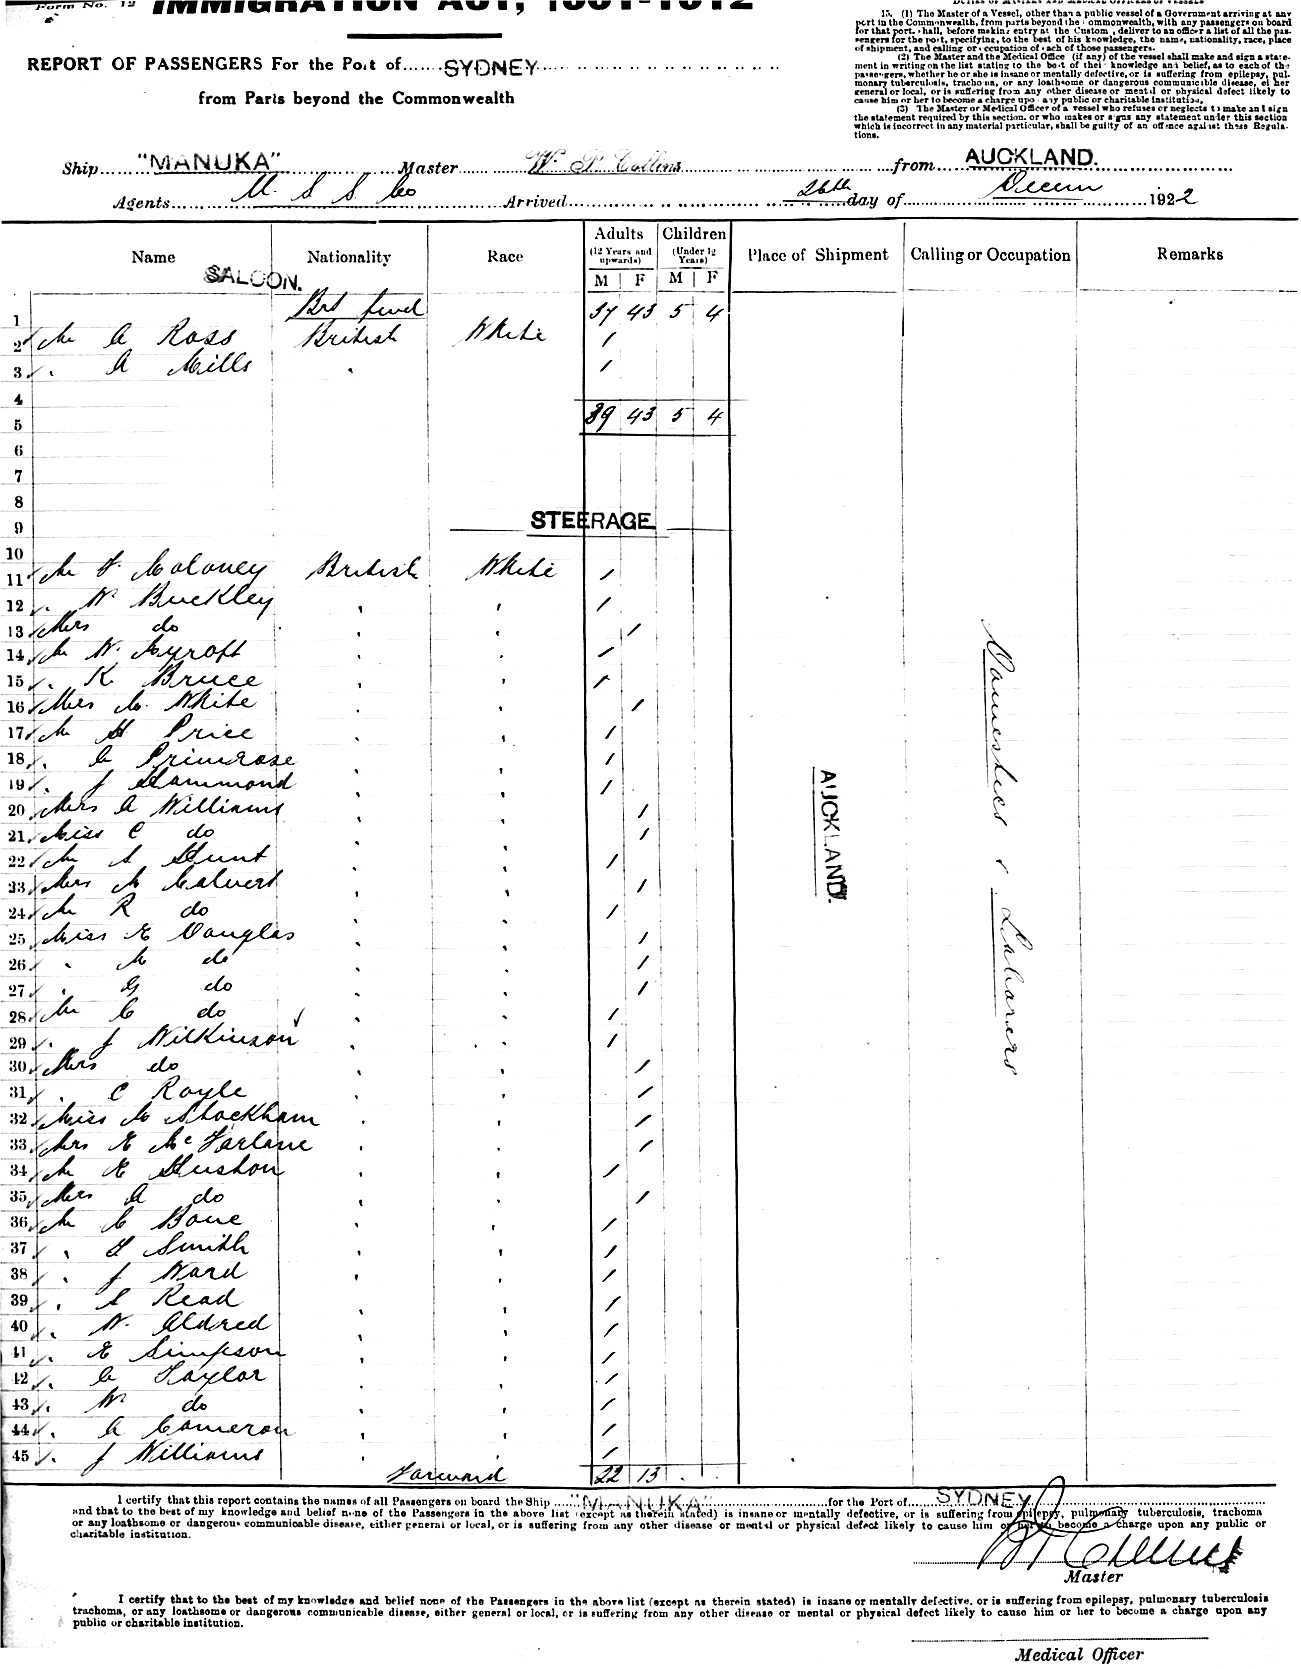 Form No. 12
IMMIGRATION ACT, 1901-1912
DUTIES OF MASTERS AND MEDICAL OFFICERS OF VESSELS
15. (1) The Master of a Vessel, other than a public vessel of a Government arriving at any
port in the Commonwealth, from parts beyond the Commonwealth, with any passengers on board
for that port, shall, before making entry at the Customs, deliver to an officer a list of all the pas-
sengers for the port, specifying, to the best of his knowledge, the name, nationality, race, place
of shipment, and calling or occupation of each of those passengers.
(2) The Master and the Medical Officer (if any) of the vessel shall make and sign a state-
ment in writing on the list stating to the best of their knowledge and belief, as to each of the
passengers, whether he or she is insane or mentally defective, or is suffering from epilepsy, pul-
monary tuberculosis, trachoma, or any loathsome or dangerous communicable disease, either
general or local, or is suffering from any other disease or mental or physical defect likely to
cause him or her to become a charge upon any public or charitable institution.
(3) The Master or Medical Officer of a vessel who refuses or neglects to make and sign
the statement required by this section, or who makes or signs any statement under this section
which is incorrect in any material particular, shall be guilty of an offence against these Regula-
tions.
REPORT OF PASSENGERS For the Port of SYDNEY
from Parts beyond the Commonwealth
Ship "MANUKA" Master W. P. Collins from AUCKLAND.
Agents U S S Co Arrived 26th day of Decem 1922
Name Nationality Race Adults (12 Years and upwards) M F Children (Under 12 Years) M F Place of Shipment Calling or Occupation Remarks
SALOON.
1 Brt fwd 37 43 5 4
2 Mr A Ross British White /
3 " A Mills " /
4
5 39 43 5 4
6
7
8
STEERAGE
9
10
11 Mr F Moloney British White /
12 " W Buckley " " /
13 Mrs do " " /
14 Mr W. Aycroft " " /
15 " K Bruce " " /
16 Mrs M. White " " /
17 Mr H Price " " /
18 " C Primrose " " /
19 " J Hammond " " /
20 Mrs A Williams " " /
21 Miss C do " " /
22 Mr S Hunt " " /
23 Mrs M Calvert " " /
24 Mr R do " " /
25 Miss E Douglas " " /
26 " M do " " /
27 " G do " " /
28 Mr C do " " /
29 " J Wilkinson " " /
30 Mrs do " " /
31 " C Royle " " /
32 Miss M Stockham " " /
33 Mrs E McFarlane " " /
34 Mr E Hushon " " /
35 Mrs A do " " /
36 Mr C Bone " " /
37 " F Smith " " /
38 " J Ward " " /
39 " S Read " " /
40 " W. Aldred " " /
41 " E Simpson " " /
42 " C Taylor " " /
43 " W do " " /
44 " A Cameron " " /
45 " J Williams " " /
Forward 22 13
AUCKLAND.
Domestics & Laborers
I certify that this report contains the names of all Passengers on board the Ship "MANUKA" for the Port of SYDNEY
and that to the best of my knowledge and belief none of the Passengers in the above list (except as therein stated) is insane or mentally defective, or is suffering from epilepsy, pulmonary tuberculosis, trachoma
or any loathsome or dangerous communicable disease, either general or local, or is suffering from any other disease or mental or physical defect likely to cause him or her to become a charge upon any public or
charitable institution.
Master
I certify that to the best of my knowledge and belief none of the Passengers in the above list (except as therein stated) is insane or mentally defective, or is suffering from epilepsy, pulmonary tuberculosis
trachoma, or any loathsome or dangerous communicable disease, either general or local, or is suffering from any other disease or mental or physical defect likely to cause him or her to become a charge upon any
public or charitable institution.
Medical Officer